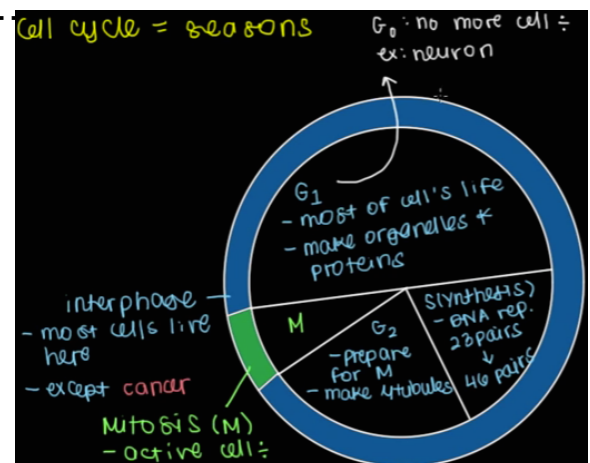 Cell cycle = seasons
G₀: no more cell ÷
ex: neuron
G₁
- most of cell's life
- make organelles &
proteins
interphase
- most cells live
here
- except cancer
M
G₂
- Prepare
for M
- make μtubules
S(ynthesis)
- DNA rep.
23 pairs
↓
46 pairs
Mitosis (M)
- active cell ÷